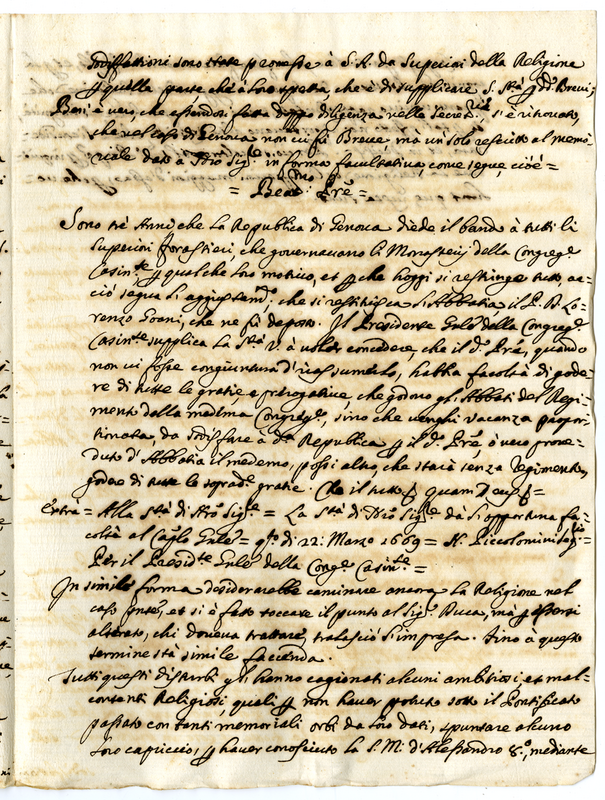 sodisfationi sono state promesse à S. A. da Superiori della Religione
p quella parte ch'à loro spetta, che è di supplicare S. Stà p dd. Brevi;
Ben'è vero, che essendosi fatta doppo diligenza nella Secret.ria, s'è ritrovato,
che nel caso di Genova non vi fù Breve, mà un solo rescritto al memo=
riale dato à Nro Sig.re in forma facultativa, come segue, cioè =
= Beat.mo Pre =
Sono trè Anni che la Republica di Genova diede il bando à tutti li
Superiori forastieri, che governavano li Monasterij della Congreg.e
Casin.te p qualche loro motivo, et p che hoggi si restringe tutto, ac=
ciò segua l'aggiustam.to, che si restituisca l'Abbatia, il P. D. Lo=
renzo Goani, che ne fù deposto. Il Presidente Gnle della Congreg.e
Casin.te supplica la Stà V. à voler concedere, che il d.o Pre, quando
non vi fosse congiuntura d'riassumerlo, habbia facoltà di gode=
re di tutte le gratie e prerogative che godono gl'Abbati del Regi=
mento della medma Congreg.e, sino che venghi vacanza propor=
tionata, da sodisfare à d.a Republica p il d.o Pre, ò vero prove=
duto d'Abbatia il medemo, possi altro, che starà senza Regimento,
godere di tutte le soprad.e gratie. Che il tutto &. quam Deus &. =
Extra = Alla Stà di Nro Sig.re = La Stà di Nro Sig.re dà l'opportuna fa=
coltà al Caplo Gnle = q.to dì 22: Marzo 1669 = N. Piccolomini
Per il Presid.te Gnle della Cong.e Casin.se =
In simile forma desiderarebbe caminare ancora la Religione nel
caso pnte, et si è fatto toccare il punto al Sig.r Duca, mà p essersi
alterato, chi doveva trattare, tralasciò l'impresa. Sino à questo
termine stà simile facenda.
Tutti questi disturbi gli hanno cagionati alcuni ambitiosi, et mal=
contenti Religiosi, quali p non haver potuto sotto il Pontificato
passato con tanti memoriali orbi da loro dati, spuntare alcuno
loro capriccio, p haver conosciuto la S. M. d'Alessandro 8.o, mediante